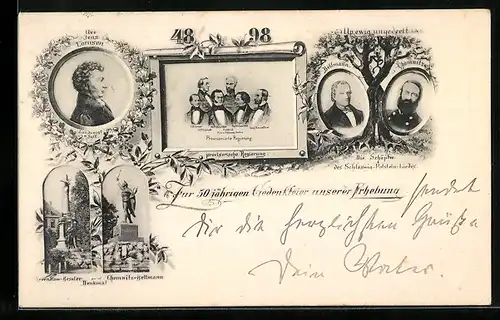 48 98
Uwe
Jens
Lornsen
Up ewig ungedeelt
Bellmann
Chemnitz
Provisorische Regierung
provisorische Regierung
Die Schöpfer
des Schleswig-Holstein-Liedes
Zur 50 jährigen Gedenkfeier unserer Erhebung
sendet
Dir die herzlichsten Grüße
Dein Vater.
Chemnitz-Bellmann
Denkmal